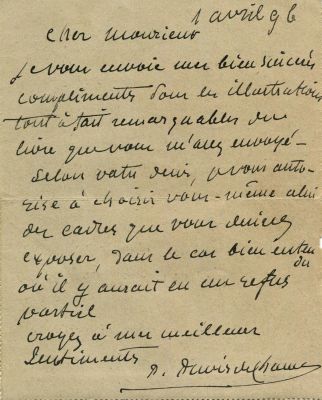 1 avril 96
Cher monsieur
Je vous envoie mes bien sincères
compliments pour les illustrations
tout à fait remarquables du
livre que vous m'avez envoyé -
Selon votre désir, je vous auto-
rise à choisir vous-même celui
des cadres que vous désirez
exposer, dans le cas bien enten
du
où il y aurait eu un refus
partiel
croyez à mes meilleurs
Sentiments
P. Puvis de Chavannes